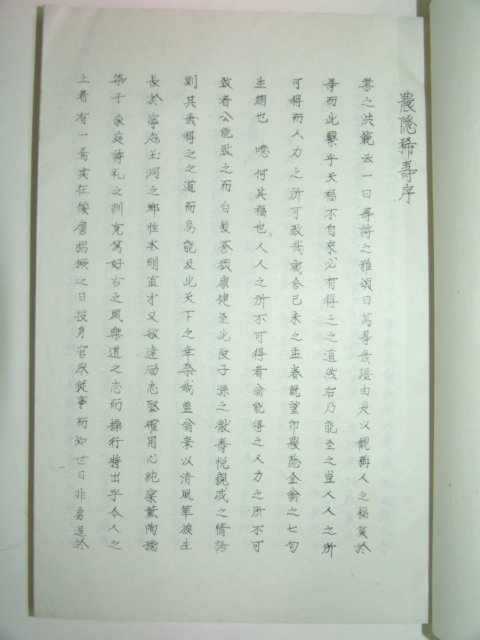 農隱稀壽序
書之洪範云一曰壽詩之雅頌曰萬壽無疆由是以觀稱人之福莫於
壽而此繫乎天福不自來必有得之之道然後乃能至之豈人人之所
可得而人力之所可致哉歲舍己未之孟春旣望卽農隱金翁之七旬
生朝也 噫何其福也人人之所不可得者翁能得之人力之所不可
致者公能致之而白髮蒼顔康健至此段子孫之獻壽悅親戚之情話
則其最得之之道而烏能及此天下之幸榮哉盖翁素以清風華族生
長於寧越玉洞之鄕性本剛直才又敏達勵志堅確用心純家薰陶擩
染于家庭詩礼之訓克篤好古之風樂道之志而操行特出乎今人之
上者有一焉其在倭虜猖獗之日投身官界從事而知世日非勇退於